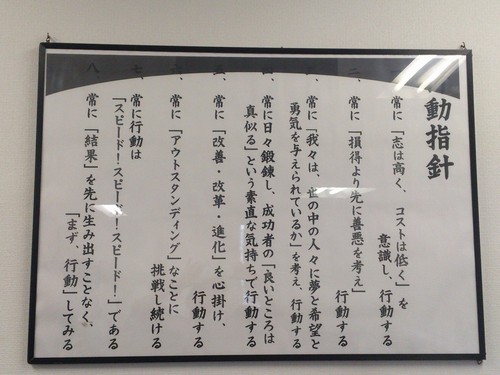 動指針
常に「志は高く、コストは低く」を
意識し、行動する
二、常に「損得より先に善悪を考え」
行動する
常に「我々は、世の中の人々に夢と希望と
勇気を与えられているか」を考え、行動する
四、常に日々鍛錬し、成功者の「良いところは
真似る」という素直な気持ちで行動する
五、常に「改善・改革・進化」を心掛け、
行動する
六、常に「アウトスタンディング」なことに
挑戦し続ける
七、常に行動は
「スピード!スピード!スピード!」である
八、常に「結果」を先に生み出すことなく、
「まず、行動」してみる